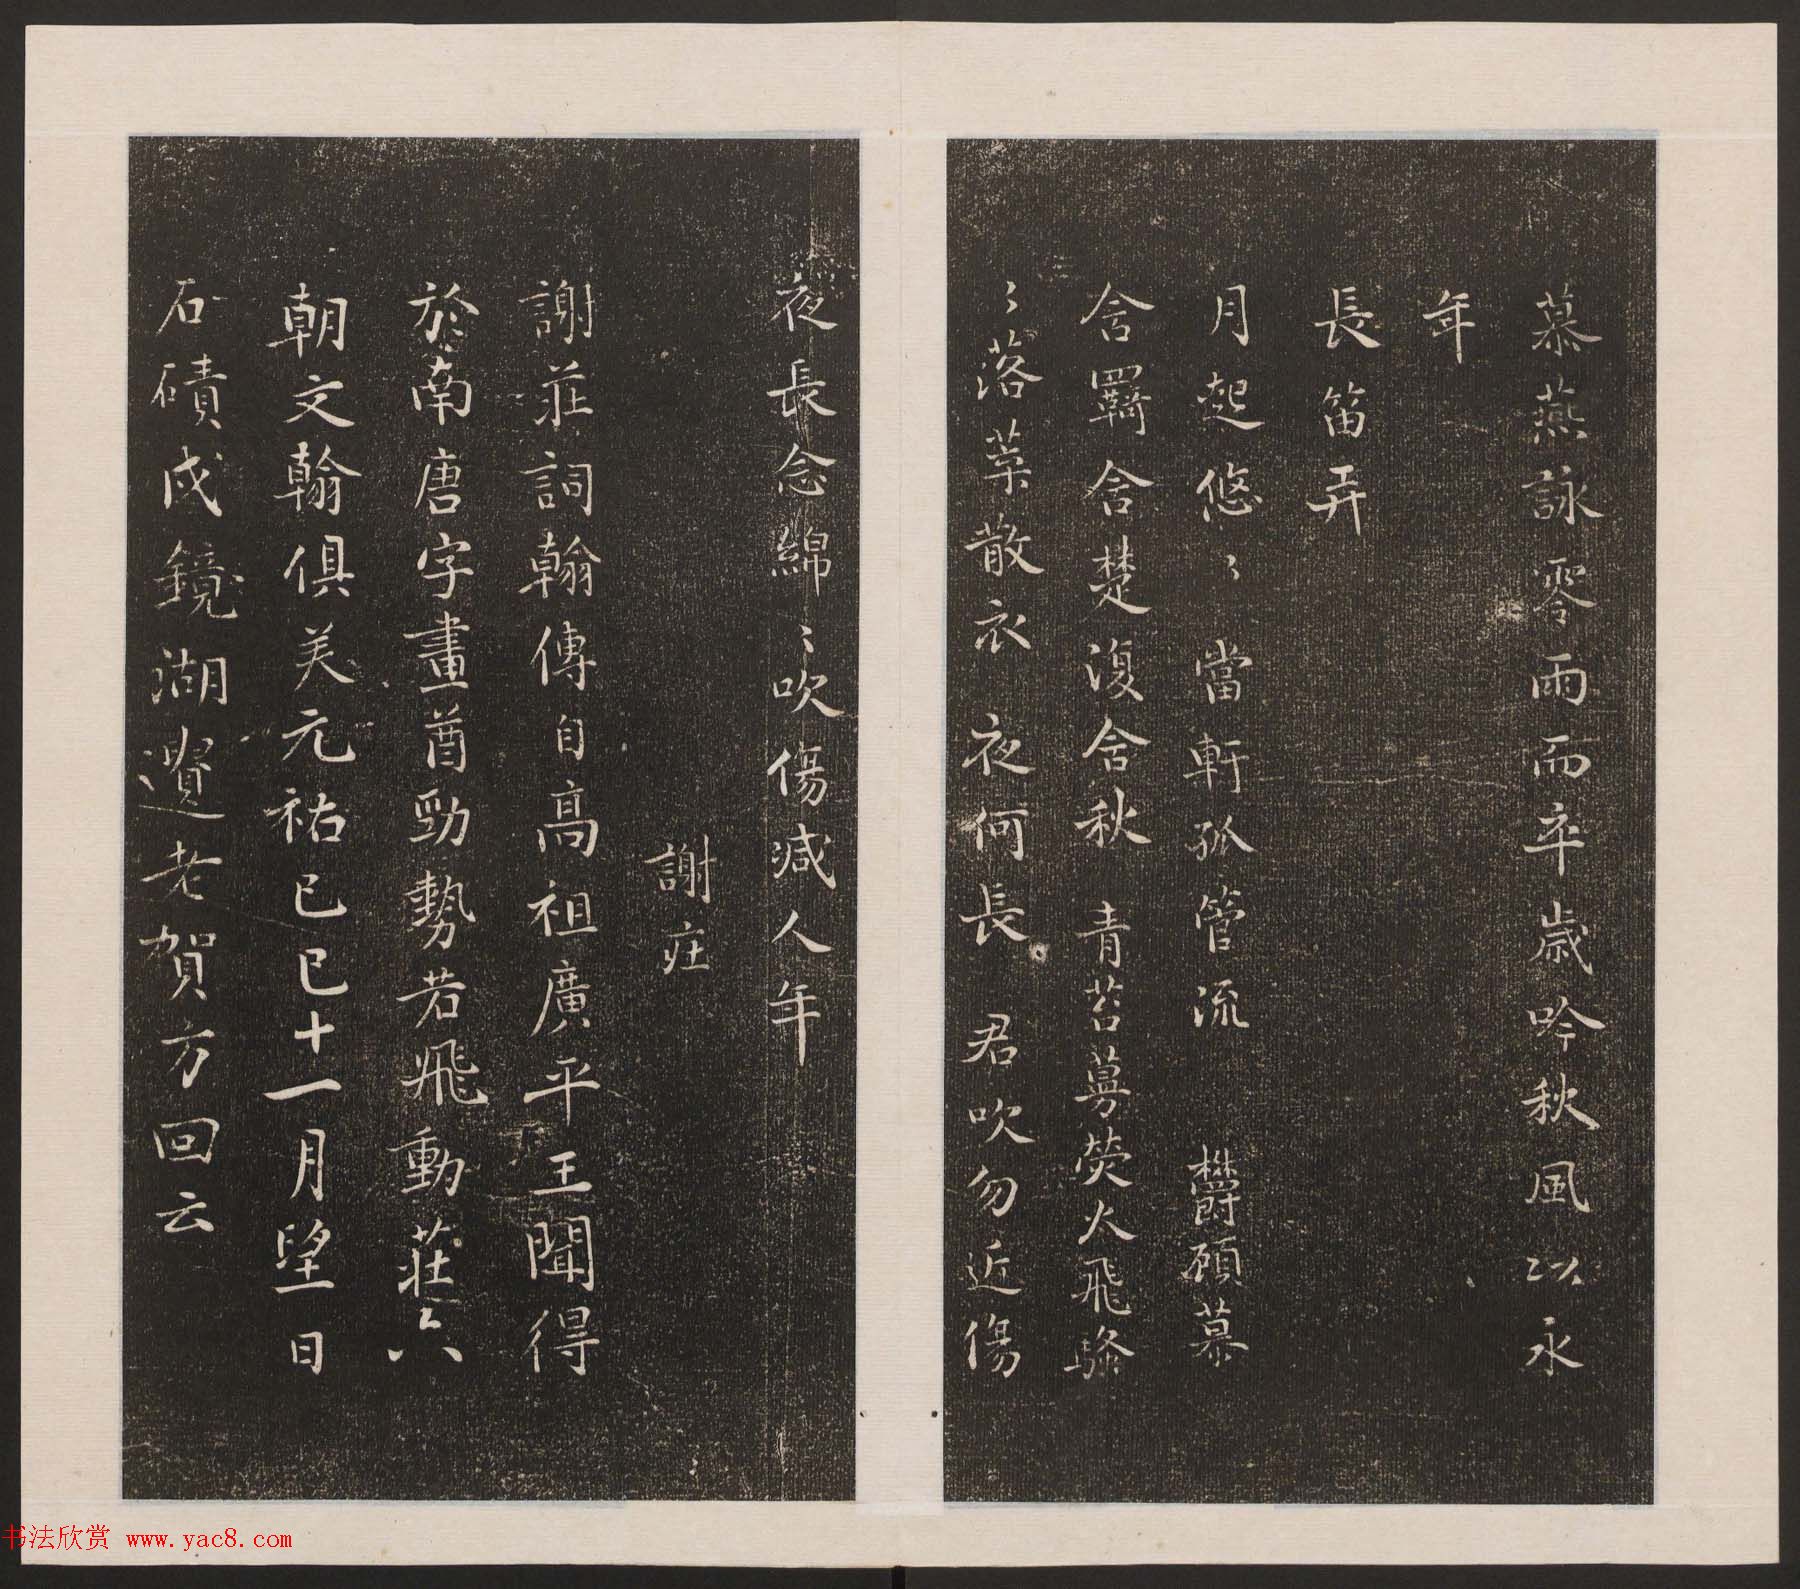 慕燕詠零雨而卒歲吟秋風以永
年
長笛弄
月起悠〻當軒孤管流 欝顧慕
含羇含楚復含秋 青苔蔓熒火飛騷
〻落葉散衣夜何長 君吹勿近傷
夜長念綿〻吹傷減人年
謝庄
謝莊詞翰傳自高祖廣平王聞得
於南唐字畫酋勁勢若飛動莊六
朝文翰俱美元祐己巳十一月望日
石磧戍鏡湖遺老賀方回云
书法欣赏 www.yac8.com